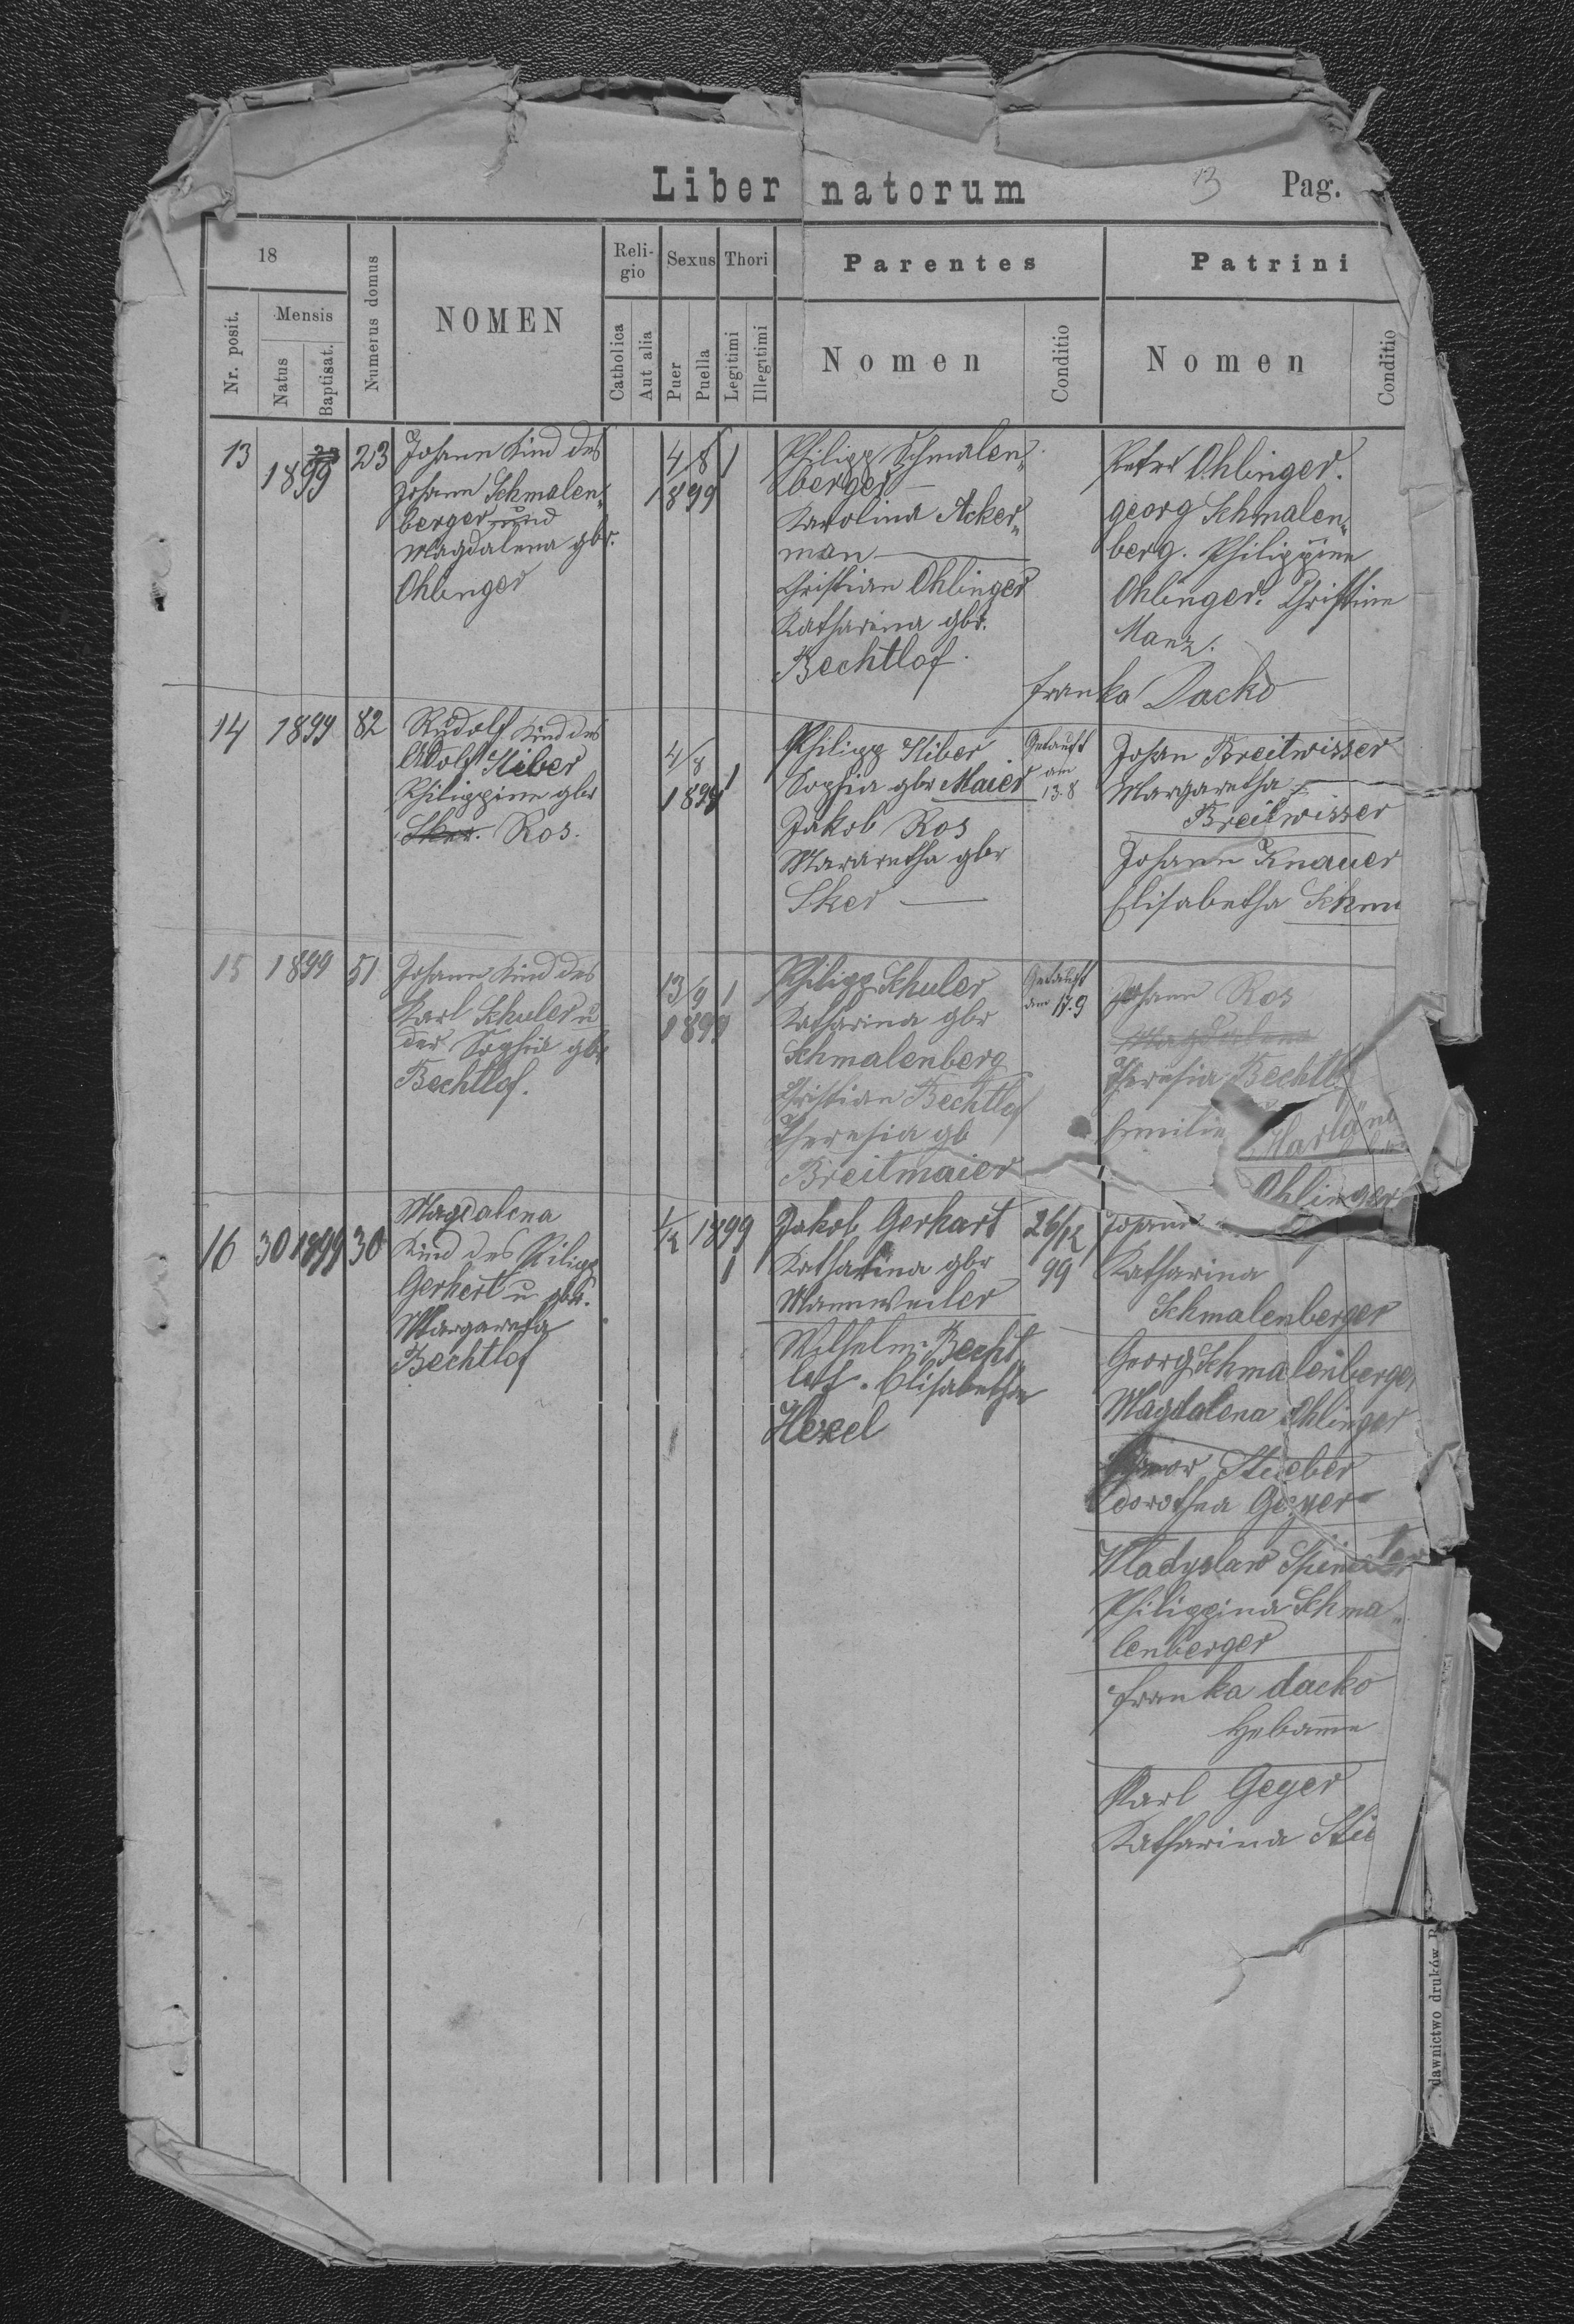 Liber natorum
13
Pag.
18
Mensis
Nr. posit.
Natus
Baptisat.
Numerus domus
NOMEN
Reli-
gio
Catholica
Aut alia
Sexus
Puer
Puella
Thori
Legitimi
Illegitimi
Parentes
Nomen
Conditio
Patrini
Nomen
Conditio
13
1899
23
Johann Kind des
Johann Schmalen„
berger und
Magdalena gbr.
Ohlinger
4/8 1
1899
Philipp Schmalen„
berger
Karolina Acker„
man
Christian Ohlinger
Katharina gbr.
Bechtlof.
Peter Ohlinger.
georg Schmalen„
berg. Philippine
Ohlinger. Christine
Manz.
franka Dacko
14 1899 82
Rudolf Kind des
Adolf Stiber
Philippine gbr
Sker. Ros.
4/8 1
1899
Philipp Stiber
Sophia gbr Maier
Jakob Ros
Mararetha gbr
Sker
Getauft
am
13.8
Johan Breitwisser
Margaretha
Breitwisser
Johann Knauer
Elisabetha Schm
15 1899 51
Johann Kind des
Karl Schuler u
der Sophie gbr
Bechtlof.
13/9 1
1899
Philipp Schuler
Katharina gbr
Schmalenberg
Christian Bechtlof
Theresia gb
Breitmaier
Getauft
am 17.9
Johann Ros
Magdalena
Theresia Bechtl
Emilie
Ohlinger
16 30 1899 30
Magdalena
Kind des Philipp
Gerhert u gbr.
Margaretha
Bechtlof
1/12 1899
1
Jakob Gerhart
Katharina gbr
Mannweiler
Wilhelm Becht„
lof. Elisabetha
Hexel
26/12
99
Johann
Katharina
Schmalenberger
Georg Schmalenberger
Magdalena Ohlinger
Stieber
Dorothea Geyer
Wladyslaw
Philippina Schma„
lenberger
franka dacko
Hebamme
Karl Geyer
Katharina Stie
dawnictwo druków